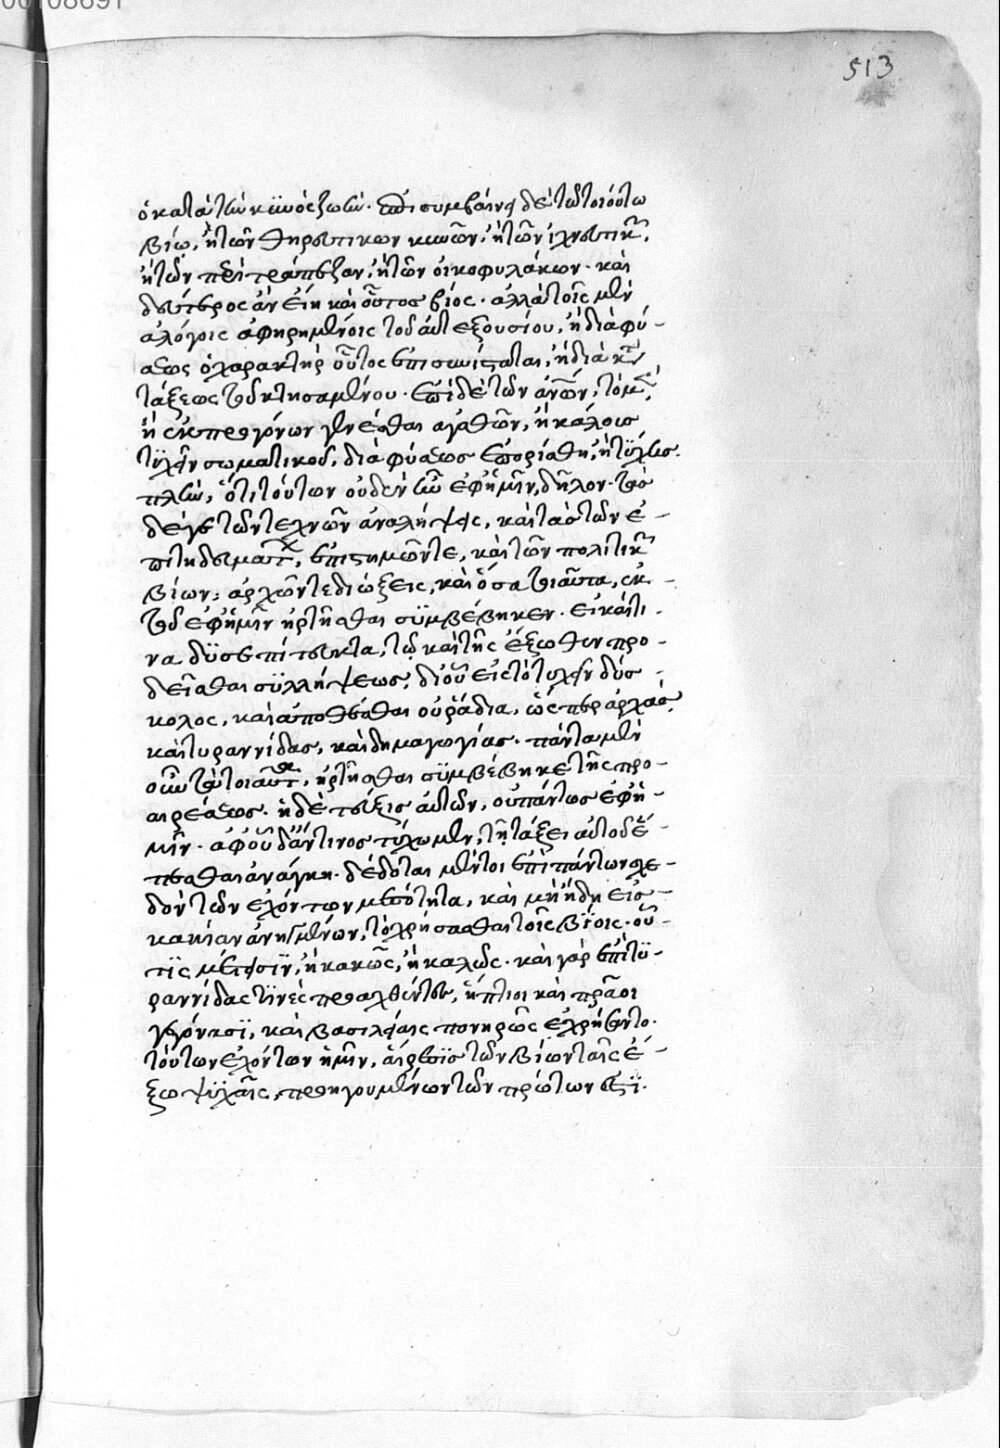 00108691
513
ὁ κατὰ τὴν κυνὸς ζωήν. ἐπισυμβαίνει δὲ τῷ τοιούτῳ
βίῳ, ἢ τῶν θηρευτικῶν κυνῶν, ἢ τῶν ἰχνευτικῶν,
ἢ τῶν περὶ τράπεζαν, ἢ τῶν οἰκοφυλάκων. καὶ
δεύτερος ἂν εἴη καὶ οὗτος βίος. ἀλλὰ τοῖς μὲν
ἀλόγοις ἀφῃρημένοις τοῦ αὐτεξουσίου, ἢ διὰ φύ-
σεως ὁ χαρακτὴρ οὗτος ἐπισυνίσταται, ἢ διὰ
τάξεως τοῦ κτησαμένου. ἐπὶ δὲ τῶν ἀνθρώπων, τὸ μὲν
ἢ ἐκ προγόνων γενέσθαι ἀγαθῶν, ἢ κάλλους
τυχεῖν σωματικοῦ, διὰ φύσεως ἐπορίσθη, ἢ τύχης.
πλὴν, ὅτι τούτων οὐδὲν ἦν ἐφ' ἡμῖν, δῆλον. τὸ
δέ γε τῶν τεχνῶν ἀναλήψεις, καὶ τὰς τῶν ἐ-
πιτηδευμάτων, ἐπιστημῶν τε, καὶ τῶν πολιτικῶν
βίων· ἀρχῶν τε διώξεις, καὶ ὅσα τοιαῦτα, ἐκ
τοῦ ἐφ' ἡμῖν ἠρτῆσθαι συμβέβηκεν. εἰ καί τι-
να δυσεπίτευκτα, τῷ καὶ τῆς ἔξωθεν προσ-
δεῖσθαι συλλήψεως, διὸ εἰς τὸ τυχεῖν δύσ-
κολος, καὶ ἀποθέσθαι οὐ ῥᾴδια, ὥσπερ ἀρχὰς,
καὶ τυραννίδας, καὶ δημαγωγίας. πάντα μὲν
οὖν τὰ τοιαῦτα, ἠρτῆσθαι συμβέβηκε τῆς προ-
αιρέσεως. ἡ δὲ τεῦξις αὐτῶν, οὐ πάντως ἐφ' ἡ-
μῖν. ἀφ' οὗ δ' ἄν τινος τύχωμεν, τῇ τάξει αὐτοῦ ἕ-
πεσθαι ἀνάγκη. δέδοται μέντοι ἐπὶ πάντων σχε-
δὸν τῶν ἐχόντων μεσότητα, καὶ μὴ ἤδη εἰς
κακίαν ἀνημμένων, τὸ χρήσασθαι τοῖς βίοις. οὕ-
τις μέτεισιν, ἢ κακῶς, ἢ καλῶς. καὶ γὰρ ἐπὶ τυ-
ραννίδας τινὲς προαχθέντες, ἤπιοι καὶ πρᾶοι
γεγόνασι, καὶ βασιλείαις πονηρῶς ἐχρήσαντο.
τούτων ἐχόντων ἡμῖν, αἵρεσις τῶν βίων ταῖς ἔ-
ξω ψυχαῖς, προηγουμένων τῶν πρώτων ἐστί.